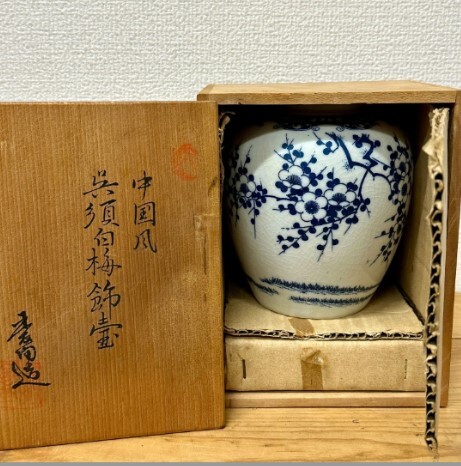 中国風
呉須白梅飾壷